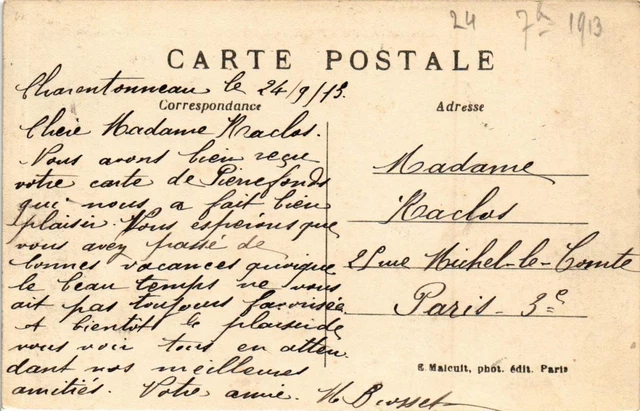 24 7b 1913
CARTE POSTALE
Charentonneau le 24/9/13.
Correspondance
Adresse
Chère Madame Raclos.
Nous avons bien reçu
votre carte de Pierrefonds
qui nous a fait bien
plaisir. Nous esperions que
vous avez passé de
bonnes vacances quoique
le beau temps ne vous
ait pas toujours favorisée.
A bientôt le plaisir de
vous voir tous en atten
dant nos meilleures
amitiés. Votre amie.
Madame
Raclos
rue Michel-le-Comte
Paris - 3e
E Malcuit, phot. édit. Paris